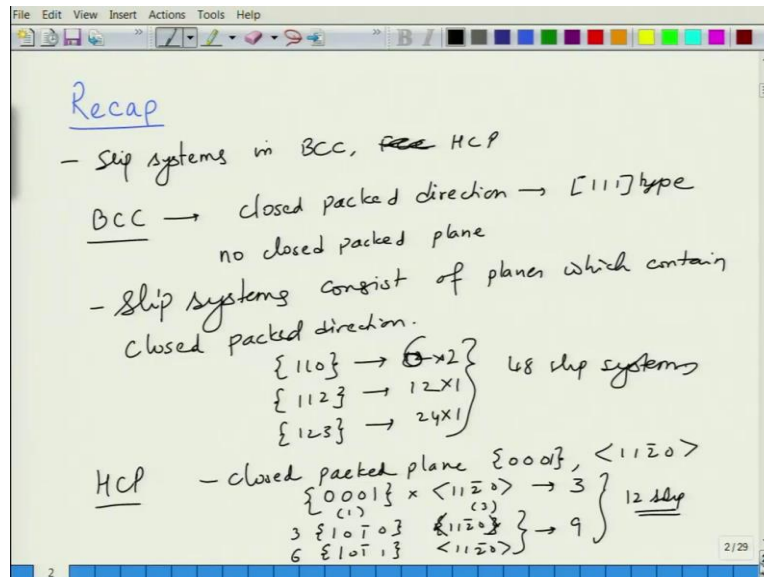 File Edit View Insert Actions Tools Help
B I
Recap
- Slip systems in BCC, HCP
BCC → closed packed direction → [111] type
no closed packed plane
- Slip systems consist of planes which contain
closed packed direction.
{110} → 6×2
{112} → 12×1
{123} → 24×1
48 slip systems
HCP - closed packed plane {0001}, <112̄0>
{0001} × <112̄0> → 3
(1) (3)
3 {101̄0} <112̄0>
6 {101̄1} <112̄0> → 9
12 slip
2/29
2